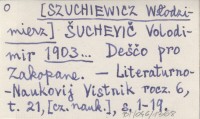 [SZUCHIEWICZ Włodzi-
mierz] ŠUCHEVIČ Volodi-
mir 1903... Deščo pro
Zakopane. — Literaturno-
Naukovij Vistnik rocz. 6,
t. 21, [cz. nauk.], s. 1-19.